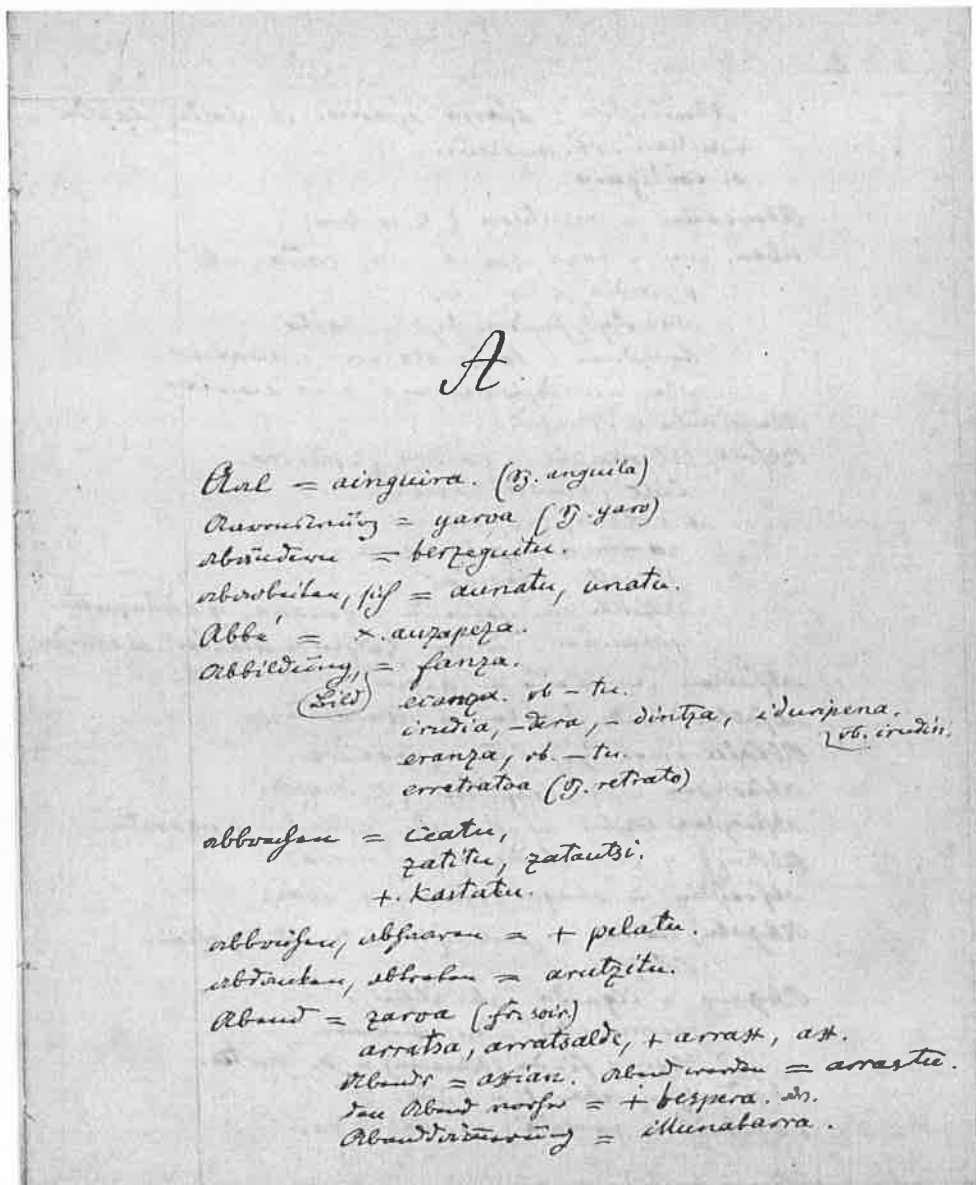 A
Aal = ainguira. (sp. anguila)
Aaronswurz = yaroa (sp. yaro)
abändern = berzeguitu.
abarbeiten, sich = aunatu, unatu.
Abbé = x. auzapeza.
Abbildung, = fanza.
(Bild) ecanza. ob – tu.
irudia, – dera, – dintza, iduripena.
ob. irudin.
eranza, ob. – tu.
erretratoa (sp. retrato)
abbrechen = iceatu,
zatitu, zatautsi.
+. kastatu.
abbrühen, abhaaren = + pelatu.
abdanken, abtreten = arutzitu.
Abend = zaroa (fr. soir)
arratsa, arratsalde, + arrast, ast.
Abends = astian. Abend werden = arrastu.
den Abend vorher = + bespera.
Abenddämmerung = illunabarra.